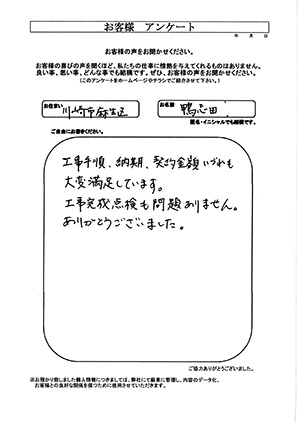 お客様 アンケート
年 月 日
お客様の声をお聞かせください。
お客様の喜びの声を聞くほど、私たちの仕事に情熱を与えてくれるものはありません。
良い事、悪い事、どんな事でも結構です。ぜひ、お客様の声をお聞かせください。
(このアンケートをホームページやチラシでご紹介させて下さい。)
お住まい 川崎市麻生区 お名前 鴨志田
匿名・イニシャルでも結構です。
ご自由にお書きください。
工事手順、納期、契約金額いづれも
大変満足しています。
工事完成点検も問題ありません。
ありがとうございました。
ご協力ありがとうございました。
※お預かり致しました個人情報につきましては、弊社にて厳重に管理し、内容のデータ化、
お客様との良好な関係を保つために使用させていただきます。